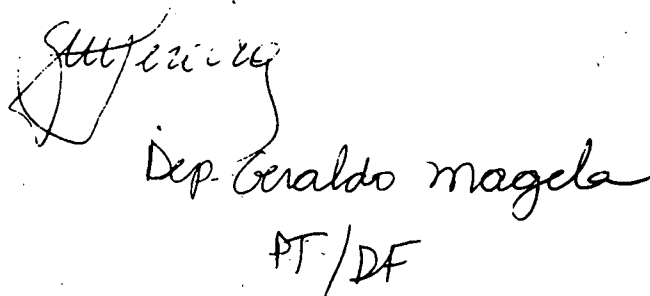 Dep. Geraldo Magela
PT/DF